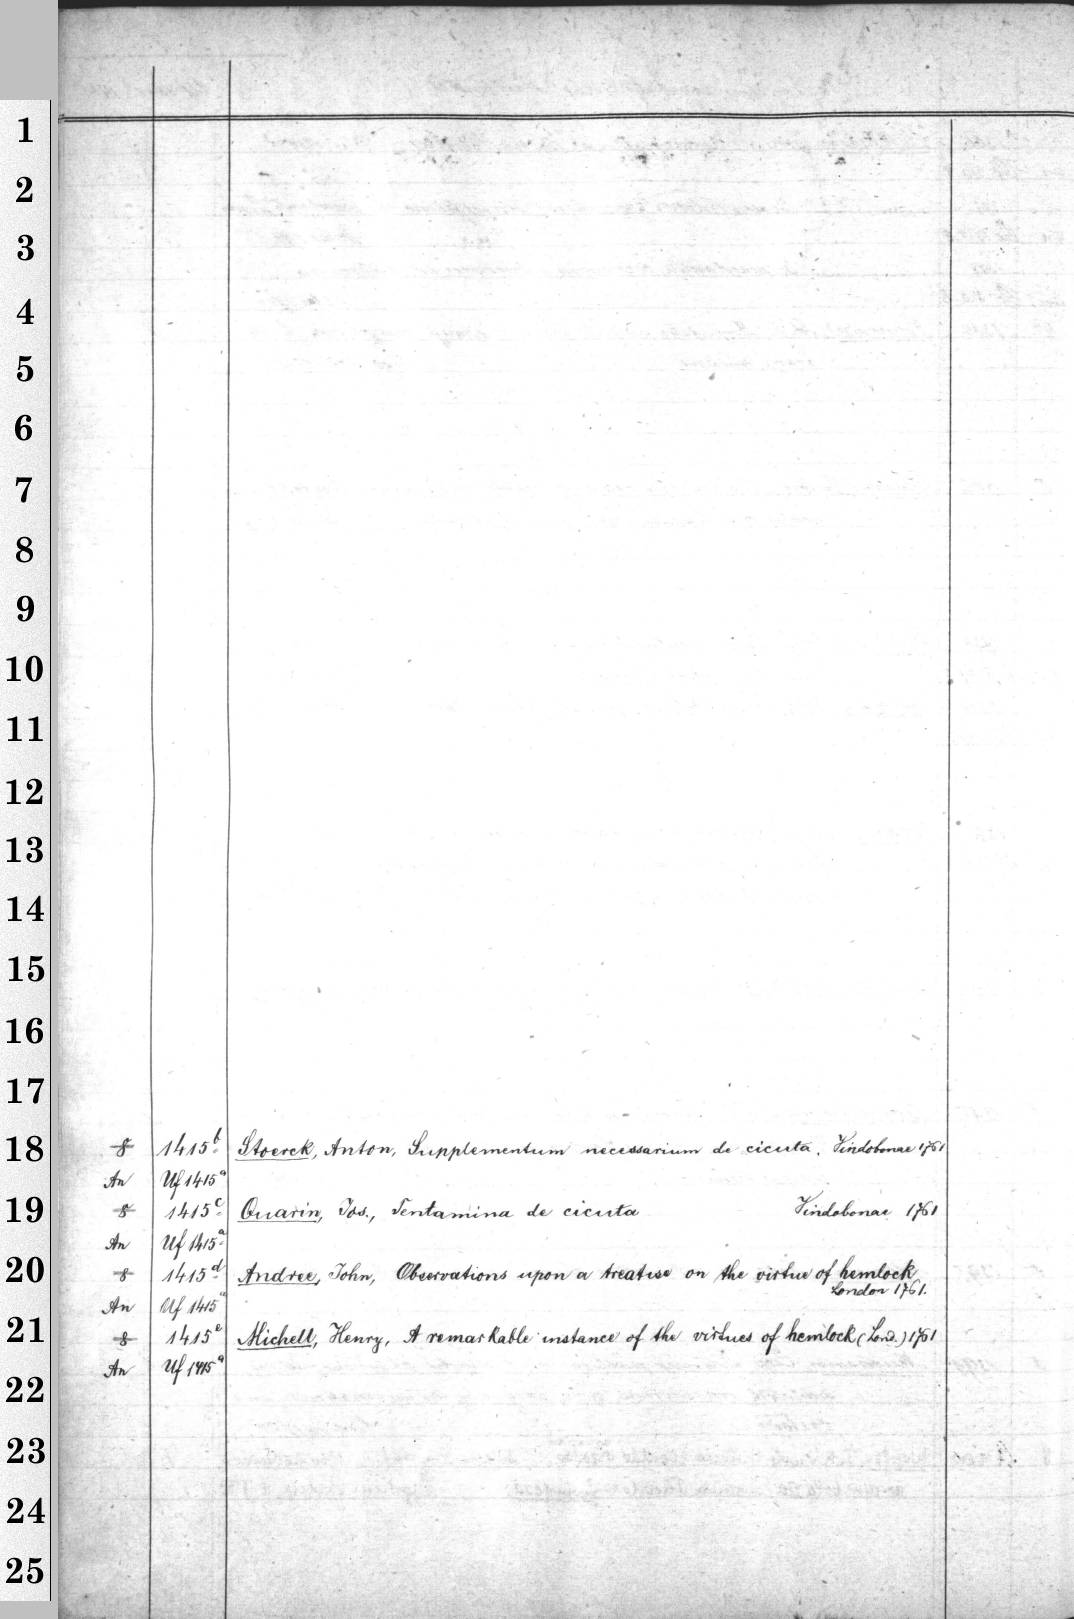 1
2
3
4
5
6
7
8
9
10
11
12
13
14
15
16
17
18 8 1415b Stoerck, Anton, Supplementum necessarium de cicuta. Vindobonae 1761
An Uf 1415a
19 8 1415c Quarin, Jos., Tentamina de cicuta Vindobonae 1761
An Uf 1415a
20 8 1415d Andree, John, Observations upon a treatise on the virtue of hemlock
London 1761.
An Uf 1415a
21 8 1415e Michell, Henry, A remarkable instance of the virtues of hemlock (Lond.) 1761
An Uf 1415a
22
23
24
25